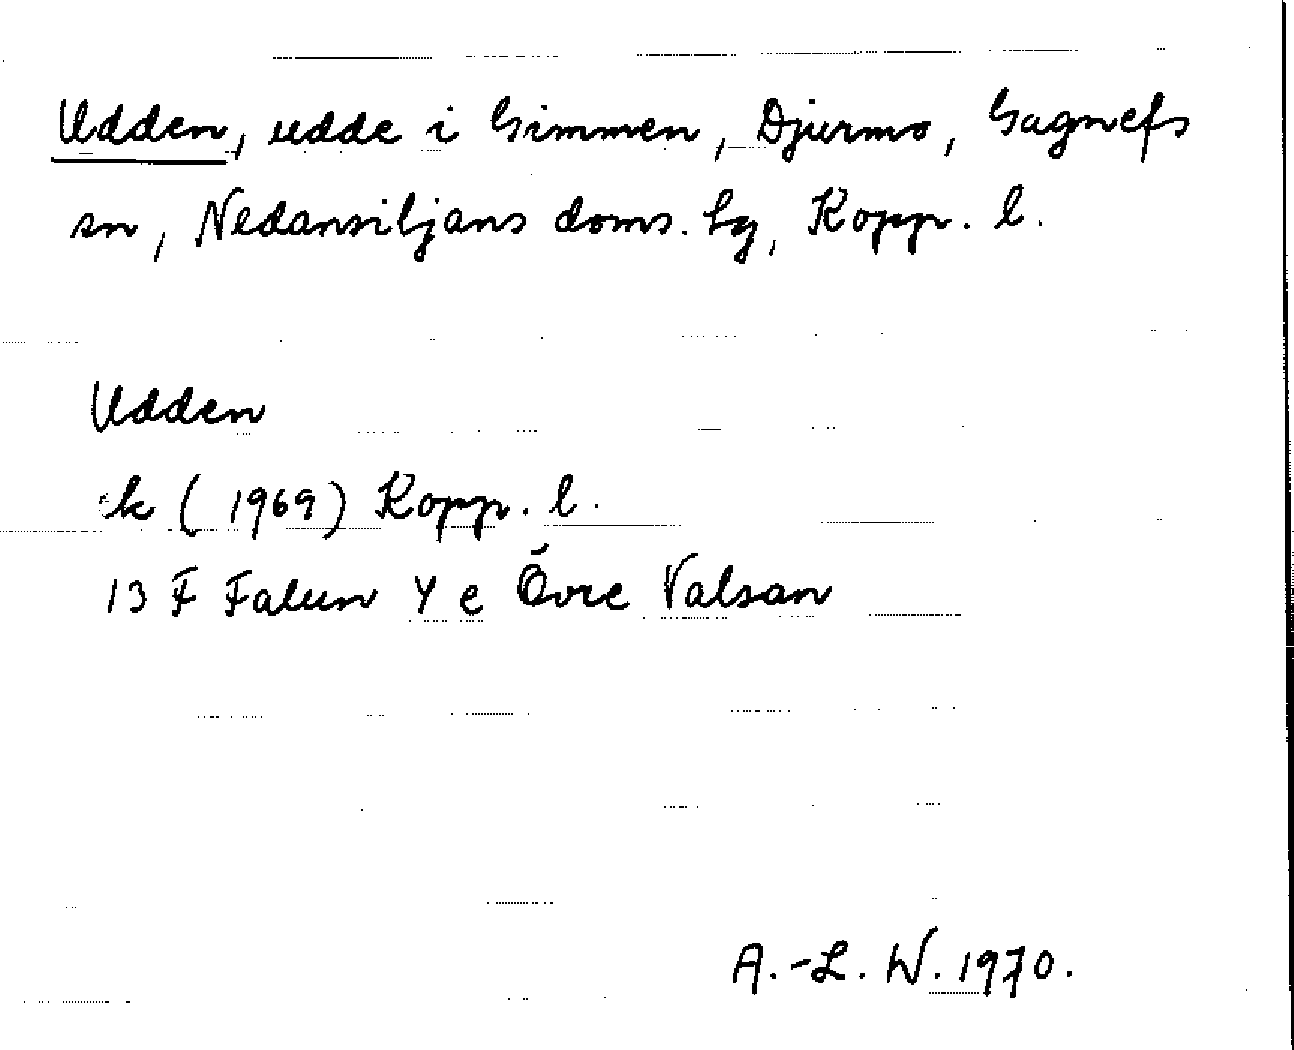 Udden, udde i Gimmen, Djurmo, Gagnefs
sn, Nedansiljans doms. hg, Kopp. l.
Udden
ek (1969) Kopp. l.
13 F Falun 4 e Övre Valsan
A.-L. W. 1970.